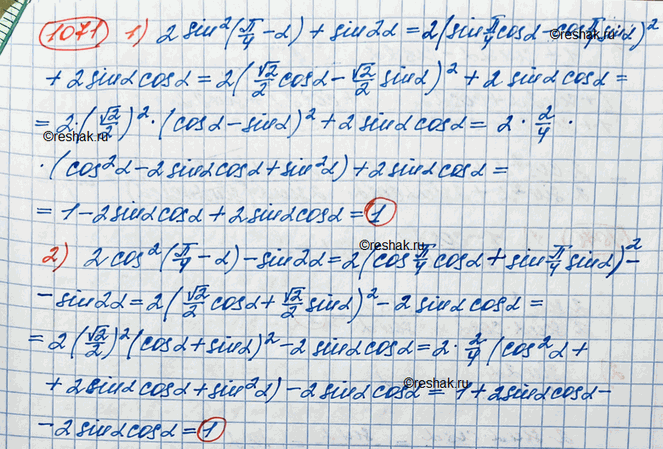 1071 1) 2 sin²(π/4 - α) + sin2α = 2(sin π/4 cosα - cos π/4 sinα)²
+ 2 sinα cosα = 2(√2/2 cosα - √2/2 sinα)² + 2 sinα cosα =
= 2·(√2/2)²·(cosα - sinα)² + 2 sinα cosα = 2 · 2/4 ·
©reshak.ru
· (cos²α - 2 sinα cosα + sin²α) + 2 sinα cosα =
= 1 - 2 sinα cosα + 2 sinα cosα = 1
©reshak.ru
2) 2 cos²(π/4 - α) - sin2α = 2(cos π/4 cosα + sin π/4 sinα)² -
- sin2α = 2(√2/2 cosα + √2/2 sinα)² - 2 sinα cosα =
= 2(√2/2)²(cosα + sinα)² - 2 sinα cosα = 2 · 2/4 (cos²α +
+ 2 sinα cosα + sin²α) - 2 sinα cosα = 1 + 2 sinα cosα -
©reshak.ru
- 2 sinα cosα = 1